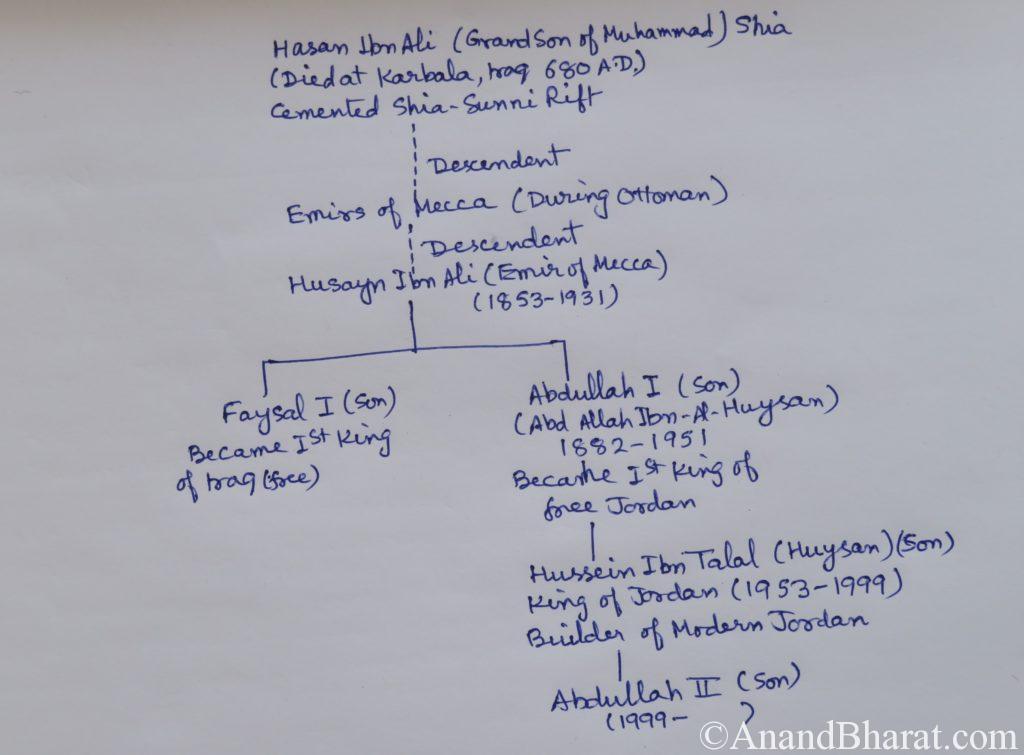 Hasan Ibn Ali (Grandson of Muhammad) Shia
(Died at Karbala, Iraq 680 A.D.)
Cemented Shia-Sunni Rift
Descendent
Emirs of Mecca (During Ottoman)
Descendent
Husayn Ibn Ali (Emir of Mecca)
(1853-1931)
Faysal I (Son)
Became Ist King
of Iraq (free)
Abdullah I (Son)
(Abd Allah Ibn-Al-Huysan)
1882-1951
Became Ist King of
free Jordan
Hussein Ibn Talal (Huysan) (Son)
King of Jordan (1953-1999)
Builder of Modern Jordan
Abdullah II (Son)
(1999- )
©AnandBharat.com